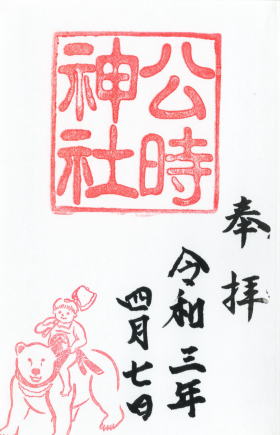 公時
神社
奉拝
令和三年
四月七日